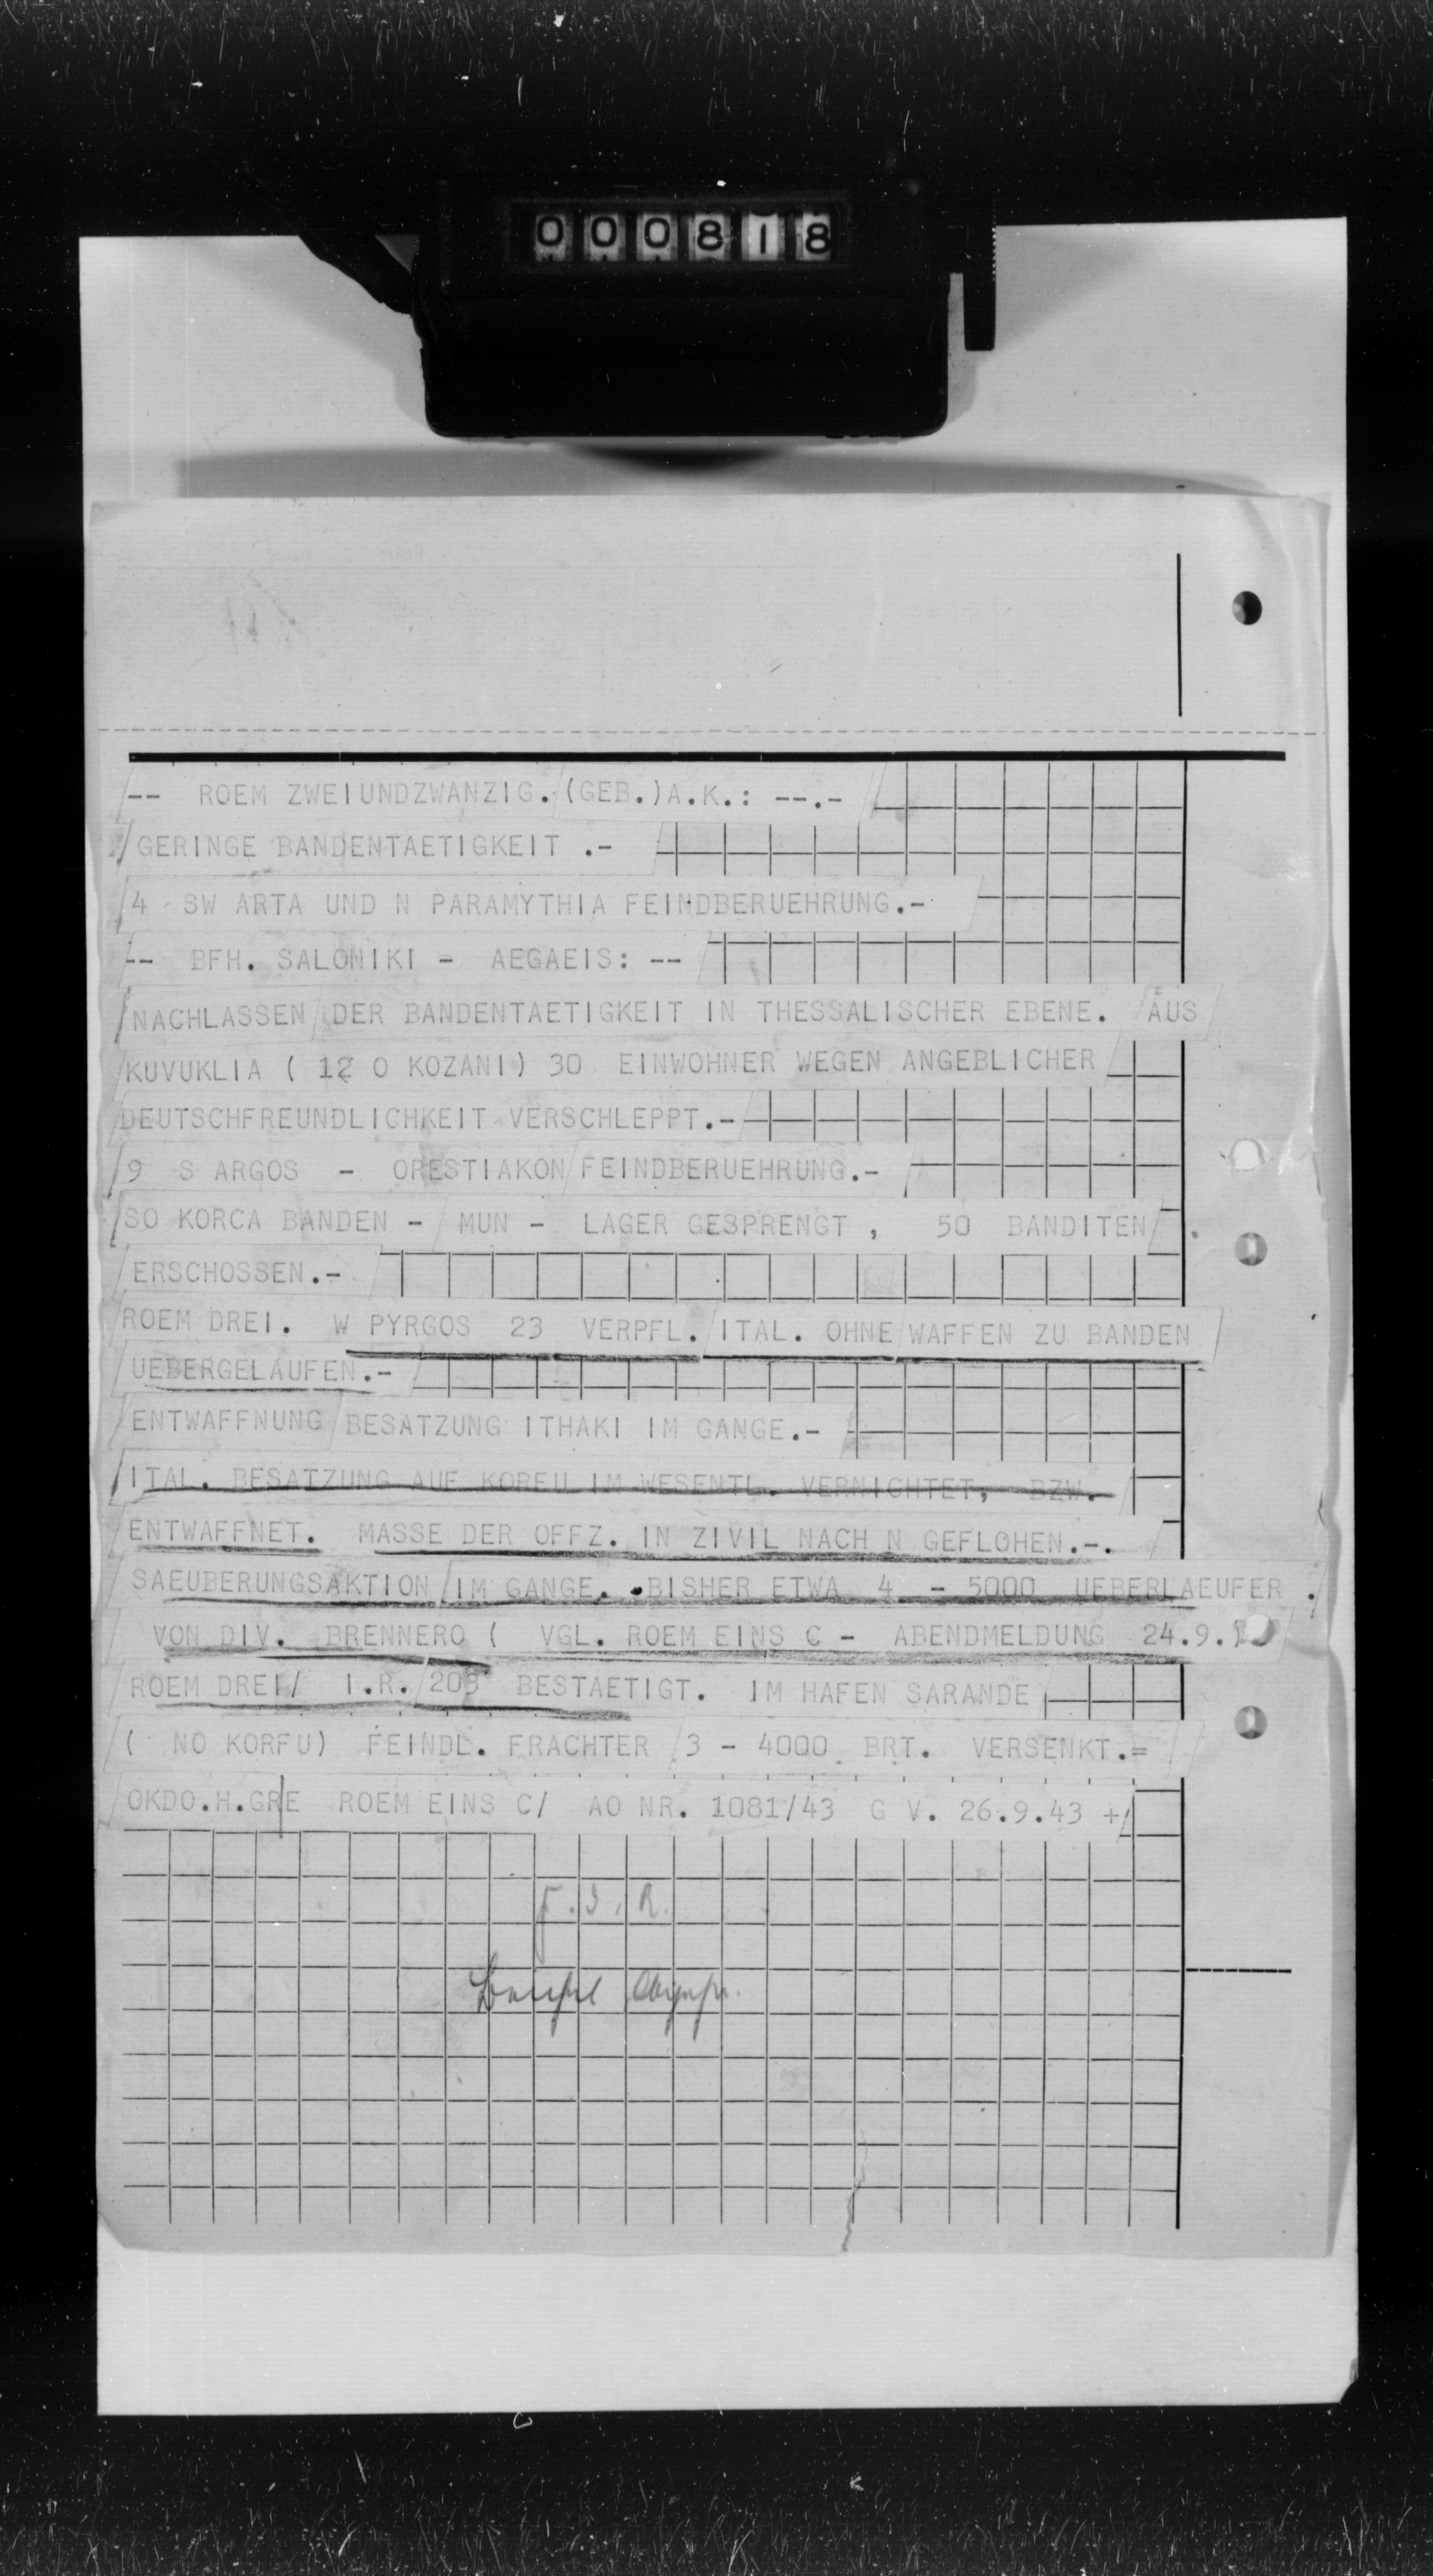 000818
-- ROEM ZWEIUNDZWANZIG. (GEB.)A.K.: --.-
GERINGE BANDENTAETIGKEIT .-
4 SW ARTA UND N PARAMYTHIA FEINDBERUEHRUNG.-
-- BFH. SALONIKI - AEGAEIS: --
NACHLASSEN DER BANDENTAETIGKEIT IN THESSALISCHER EBENE. AUS
KUVUKLIA ( 12 O KOZANI) 30 EINWOHNER WEGEN ANGEBLICHER
DEUTSCHFREUNDLICHKEIT VERSCHLEPPT.-
9 S ARGOS - ORESTIAKON FEINDBERUEHRUNG.-
SO KORCA BANDEN - MUN - LAGER GESPRENGT , 50 BANDITEN
ERSCHOSSEN.-
ROEM DREI. W PYRGOS 23 VERPFL. ITAL. OHNE WAFFEN ZU BANDEN
UEBERGELAUFEN.-
ENTWAFFNUNG BESATZUNG ITHAKI IM GANGE.-
ITAL. BESATZUNG AUF KORFU IM WESENTL. VERNICHTET, BZW.
ENTWAFFNET. MASSE DER OFFZ. IN ZIVIL NACH N GEFLOHEN.-.
SAEUBERUNGSAKTION IM GANGE. BISHER ETWA 4 - 5000 UEBERLAEUFER .
VON DIV. BRENNERO ( VGL. ROEM EINS C - ABENDMELDUNG 24.9.)
ROEM DREI/ I.R. 203 BESTAETIGT. IM HAFEN SARANDE
( NO KORFU) FEINDL. FRACHTER 3 - 4000 BRT. VERSENKT.=
OKDO.H.GRE ROEM EINS C/ AO NR. 1081/43 G V. 26.9.43 +
F.d.R.